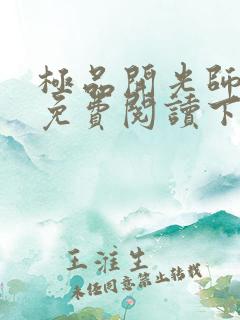 極品開光師
免費閱讀下
王淮生
未经同意禁止转载